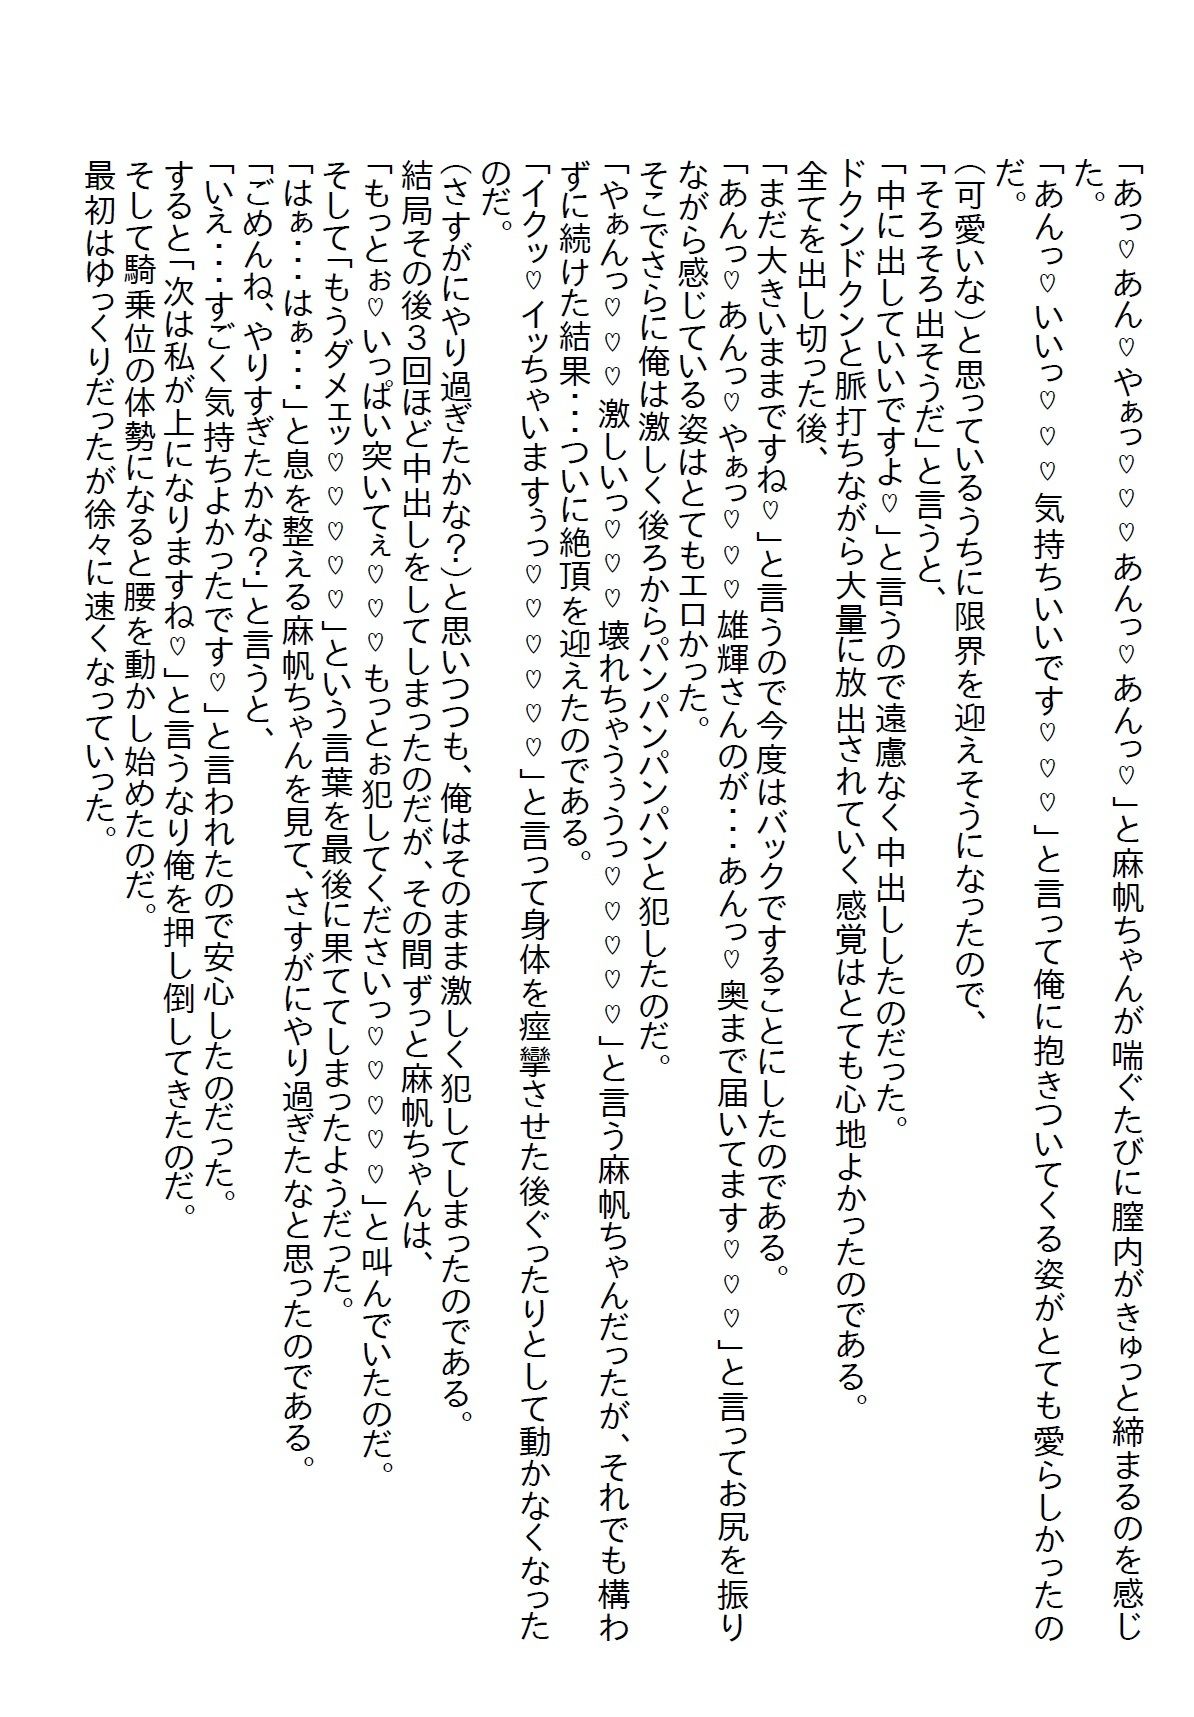 「あっ♡あん♡やぁっ♡♡♡あんっ♡あんっ♡」と麻帆ちゃんが喘ぐたびに膣内がきゅっと締まるのを感じ
た。
「あんっ♡いいっ♡♡♡気持ちいいです♡♡♡」と言って俺に抱きついてくる姿がとても愛らしかったの
だ。
(可愛いな)と思っているうちに限界を迎えそうになったので、
「そろそろ出そうだ」と言うと、
「中に出していいですよ♡」と言うので遠慮なく中出ししたのだった。
ドクンドクンと脈打ちながら大量に放出されていく感覚はとても心地よかったのである。
全てを出し切った後、
「まだ大きいままですね♡」と言うので今度はバックですることにしたのである。
「あんっ♡あんっ♡やぁっ♡♡♡雄輝さんのが・・・あんっ♡奥まで届いてます♡♡♡」と言ってお尻を振り
ながら感じている姿はとてもエロかった。
そこでさらに俺は激しく後ろからパンパンパンパンと犯したのだ。
「やぁんっ♡♡♡激しいっ♡♡♡壊れちゃうぅうっ♡♡♡♡♡」と言う麻帆ちゃんだったが、それでも構わ
ずに続けた結果・・・ついに絶頂を迎えたのである。
「イクッ♡イッちゃいますぅっ♡♡♡♡♡♡」と言って身体を痙攣させた後ぐったりとして動かなくなった
のだ。
(さすがにやり過ぎたかな?)と思いつつも、俺はそのまま激しく犯してしまったのである。
結局その後3回ほど中出しをしてしまったのだが、その間ずっと麻帆ちゃんは、
「もっとぉ♡いっぱい突いてぇ♡♡♡もっとぉ犯してくださいっ♡♡♡♡♡」と叫んでいたのだ。
そして「もうダメェッ♡♡♡♡♡」という言葉を最後に果ててしまったようだった。
「はぁ・・・はぁ・・・」と息を整える麻帆ちゃんを見て、さすがにやり過ぎたなと思ったのである。
「ごめんね、やりすぎたかな?」と言うと、
「いえ・・・すごく気持ちよかったです♡」と言われたので安心したのだった。
すると「次は私が上になりますね♡」と言うなり俺を押し倒してきたのだ。
そして騎乗位の体勢になると腰を動かし始めたのだ。
最初はゆっくりだったが徐々に速くなっていった。